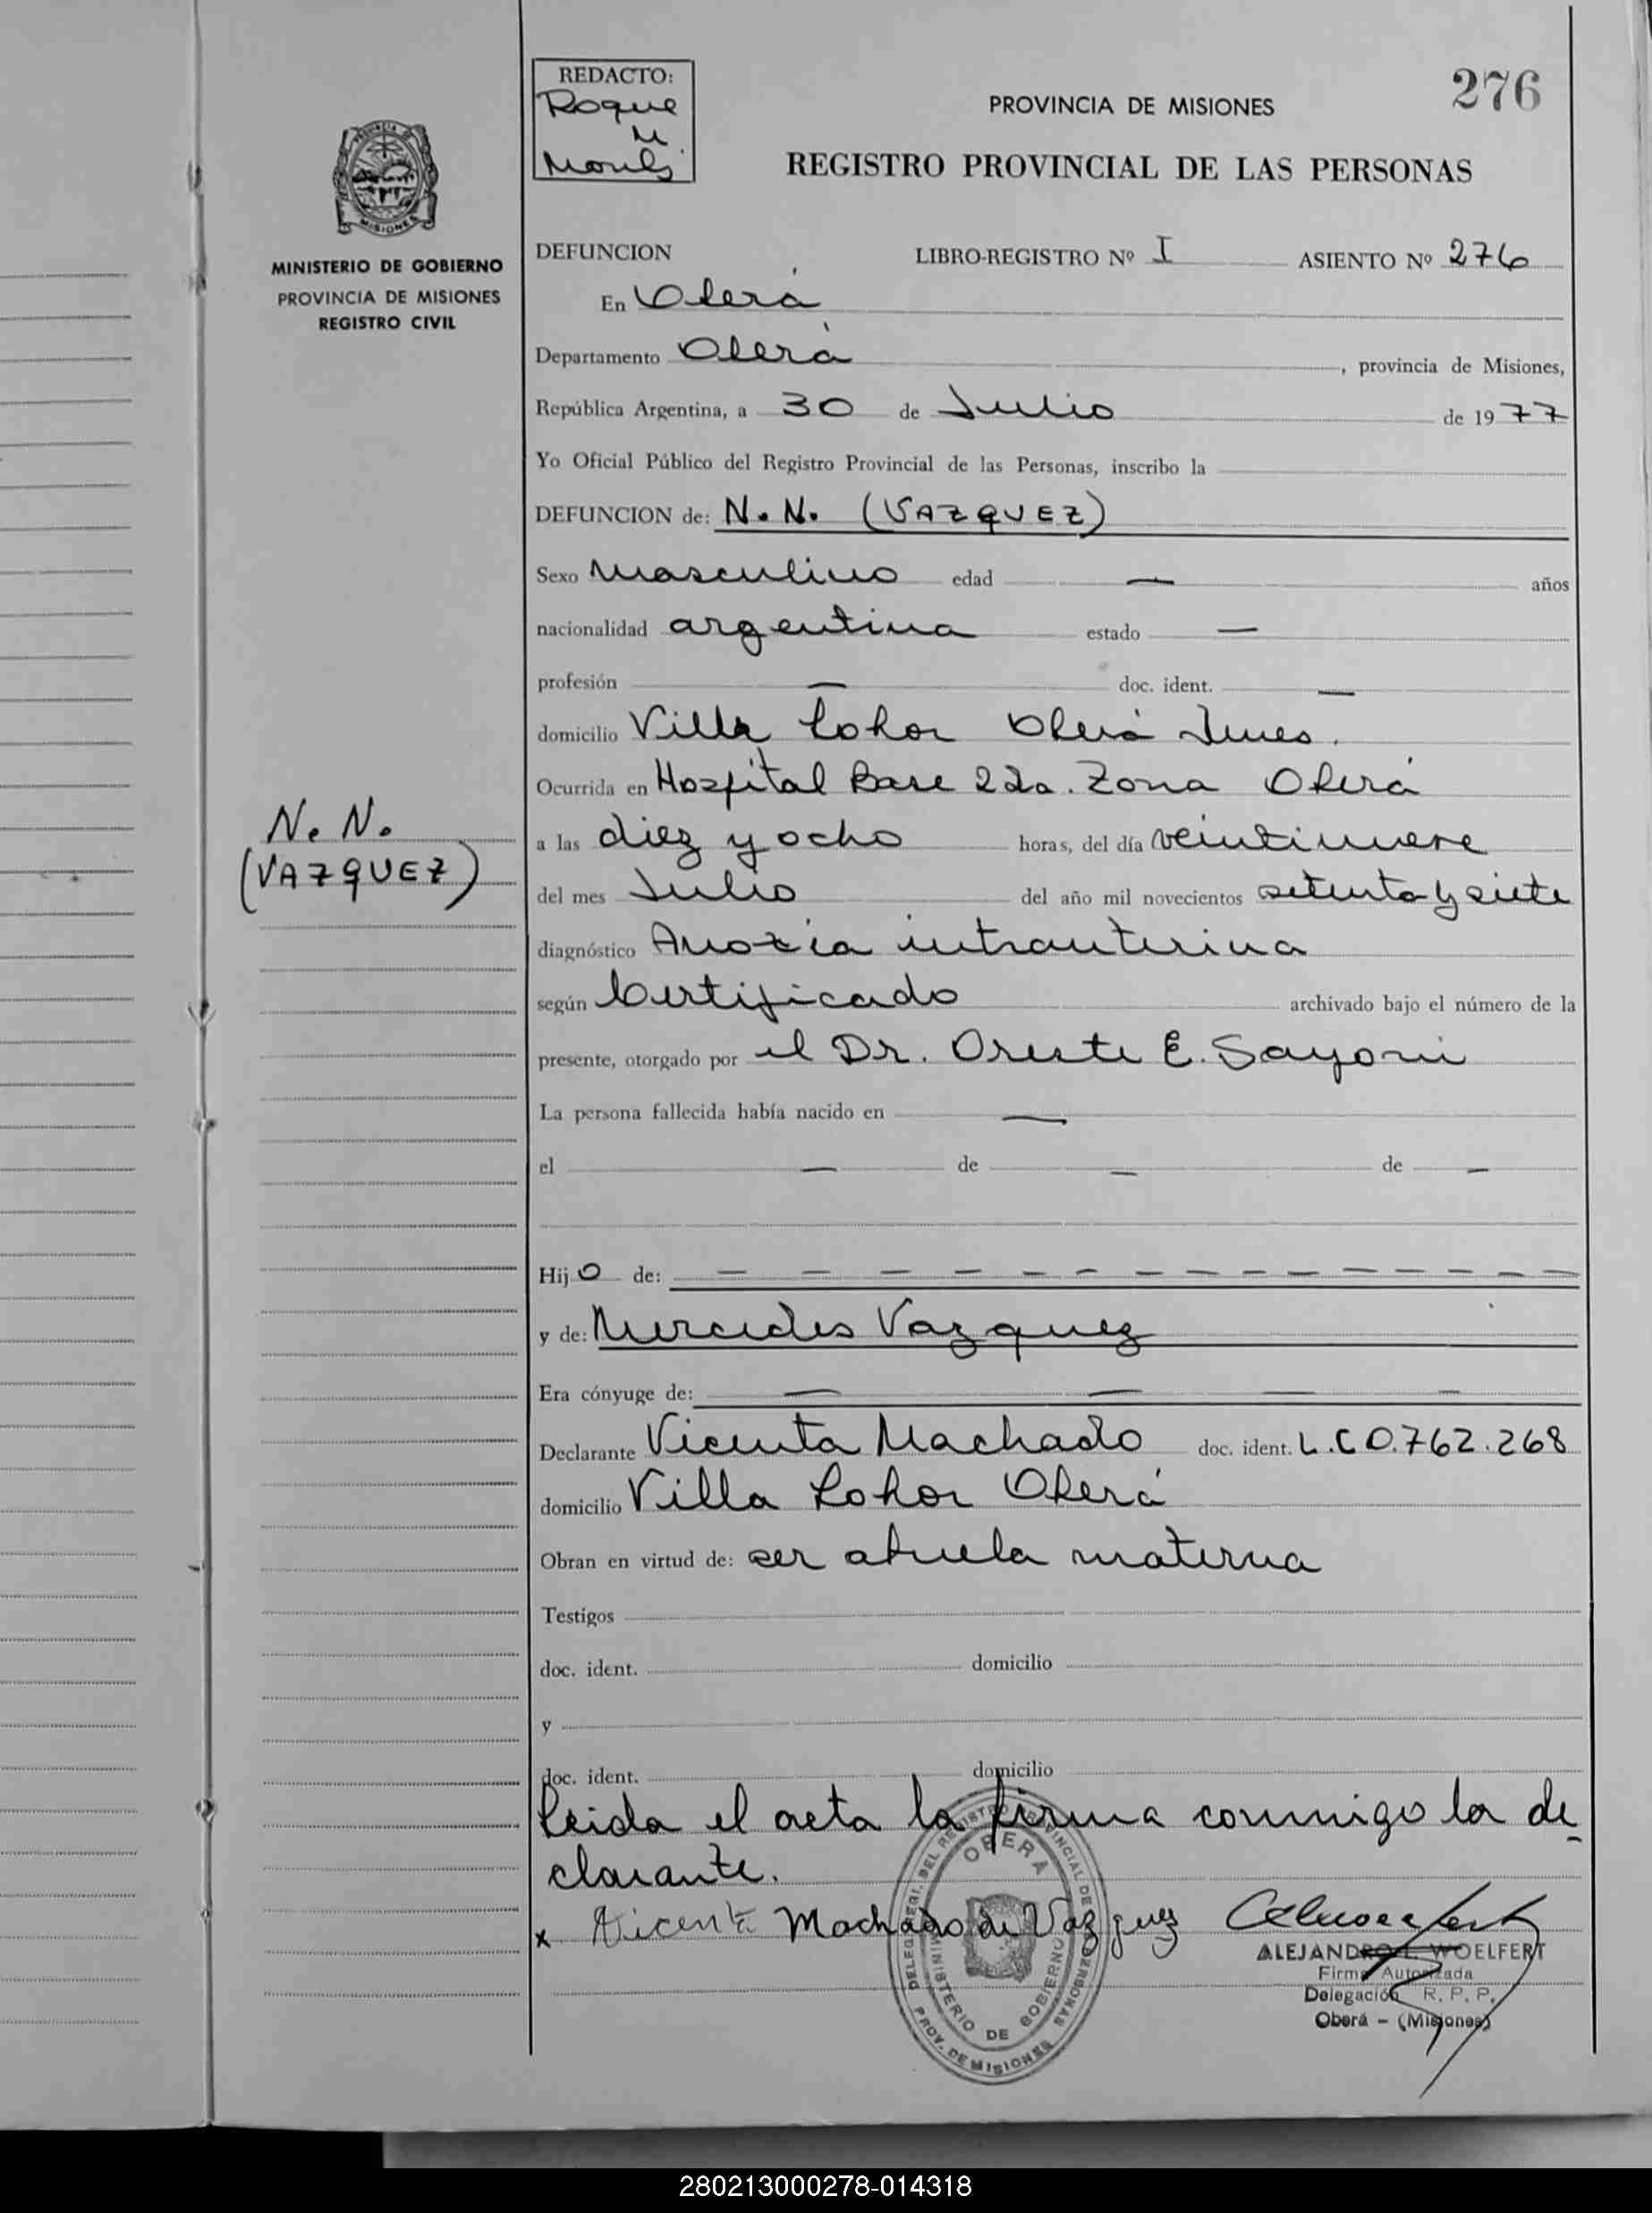 REDACTO:
Roque
M
276
PROVINCIA DE MISIONES
REGISTRO PROVINCIAL DE LAS PERSONAS
MINISTERIO DE GOBIERNO
PROVINCIA DE MISIONES
REGISTRO CIVIL
DEFUNCION LIBRO-REGISTRO Nº I ASIENTO Nº 276
En Oberá
Departamento Oberá, provincia de Misiones,
República Argentina, a 30 de Julio de 1977
Yo Oficial Público del Registro Provincial de las Personas, inscribo la
DEFUNCION de: N.N. (VAZQUEZ)
Sexo Masculino edad — años
nacionalidad argentina estado —
profesión — doc. ident. —
domicilio Villa Oberá
Ocurrida en Hospital Base 2da. Zona Oberá
N. N.
(VAZQUEZ)
a las diez y ocho horas, del día veintinueve
del mes Julio del año mil novecientos setenta y siete
diagnóstico Anoxia intrauterina
según Certificado archivado bajo el número de la
presente, otorgado por el Dr. Oreste E.
La persona fallecida había nacido en —
el — de — de —
Hijo de: — — — — — — — — — — — — —
y de: Mercedes Vazquez
Era cónyuge de: — — — —
Declarante Vicenta Machado doc. ident. L.C 0.762.268
domicilio Villa Oberá
Obran en virtud de: ser abuela materna
Testigos
doc. ident. domicilio
y
doc. ident. domicilio
Leida el acta la firma conmigo la de
clarante.
x Vicenta Machado de Vazquez
DELEG. DEL REGISTRO PROVINCIAL DE LAS PERSONAS
OBERA
MINISTERIO DE GOBIERNO
PROV. DE MISIONES
ALEJANDRO E. WOELFERT
Firma Autorizada
Delegación R. P. P.
Oberá - (Misiones)
280213000278-014318